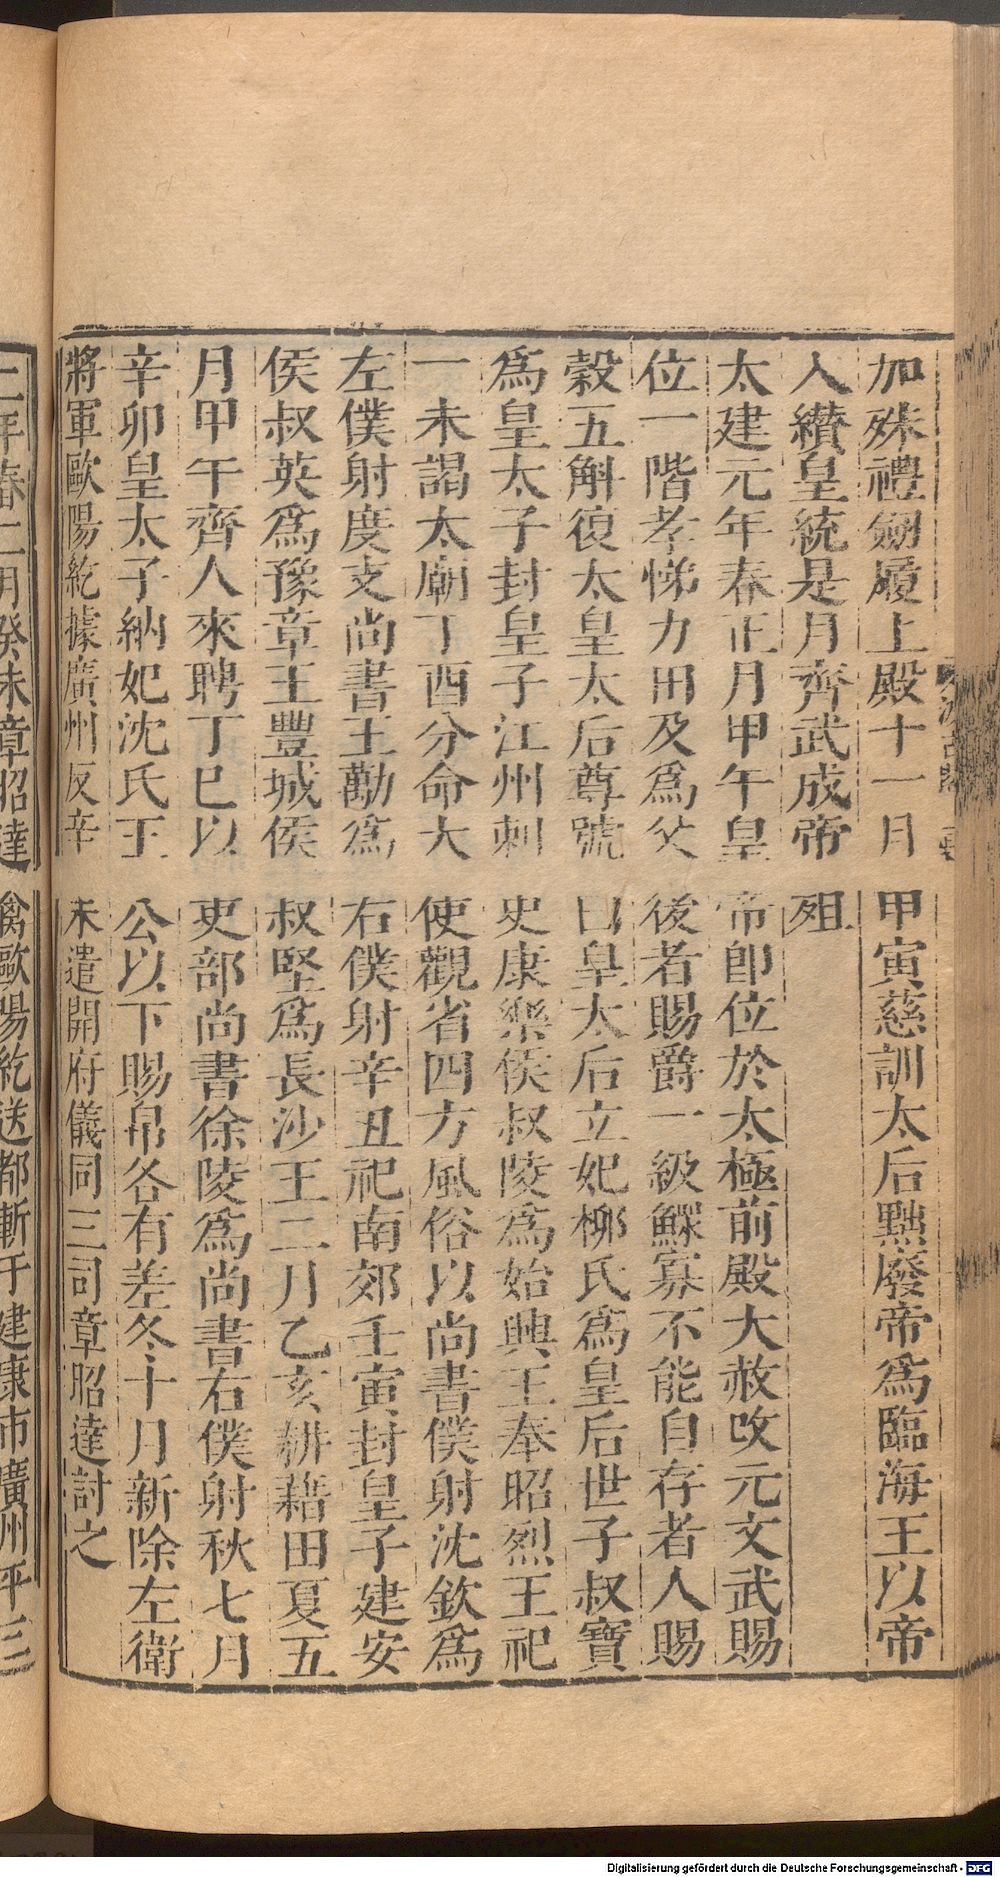 加殊禮劒履上殿十一月甲寅慈訓太后黜廢帝爲臨海王以帝
入纉皇統是月齊武成帝殂
太建元年春正月甲午皇帝即位於太極前殿大赦改元文武賜
位一階孝悌力田及爲父後者賜爵一級鰥寡不能自存者人賜
穀五斛復太皇太后尊號曰皇太后立妃柳氏爲皇后世子叔寶
爲皇太子封皇子江州刺史康樂侯叔陵爲始興王奉昭烈王祀
一未謁太廟丁酉分命大使觀省四方風俗以尚書僕射沈欽爲
左僕射度支尚書王勱爲右僕射辛丑祀南郊壬寅封皇子建安
侯叔英爲豫章王豐城侯叔堅爲長沙王二月乙亥耕藉田夏五
月甲午齊人來聘丁巳以吏部尚書徐陵爲尚書右僕射秋七月
辛卯皇太子納妃沈氏王公以下賜帛各有差冬十月新除左衛
將軍歐陽紇據廣州反辛未遣開府儀同三司章昭達討之
二年春二月癸未章昭達禽歐陽紇送都斬于建康市廣州平三
Digitalisierung gefördert durch die Deutsche Forschungsgemeinschaft - DFG